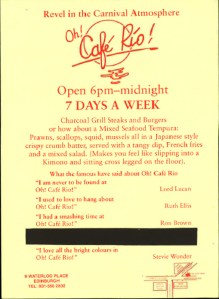 Revel in the Carnival Atmosphere
Oh!
Café Rio!
Open 6pm–midnight
7 DAYS A WEEK
Charcoal Grill Steaks and Burgers
or how about a Mixed Seafood Tempura:
Prawns, scallops, squid, mussels all in a Japanese style
crispy crumb batter, served with a tangy dip, French fries
and a mixed salad. (Makes you feel like slipping into a
Kimono and sitting cross legged on the floor).
What the famous have said about Oh! Café Rio
"I am never to be found at
Oh! Café Rio!" Lord Lucan
"I used to love to hang about
Oh! Café Rio!" Ruth Ellis
"I had a smashing time at
Oh! Café Rio!" Ron Brown
"I love all the bright colours in
Oh! Café Rio!" Stevie Wonder
8 WATERLOO PLACE
EDINBURGH
TEL: 031